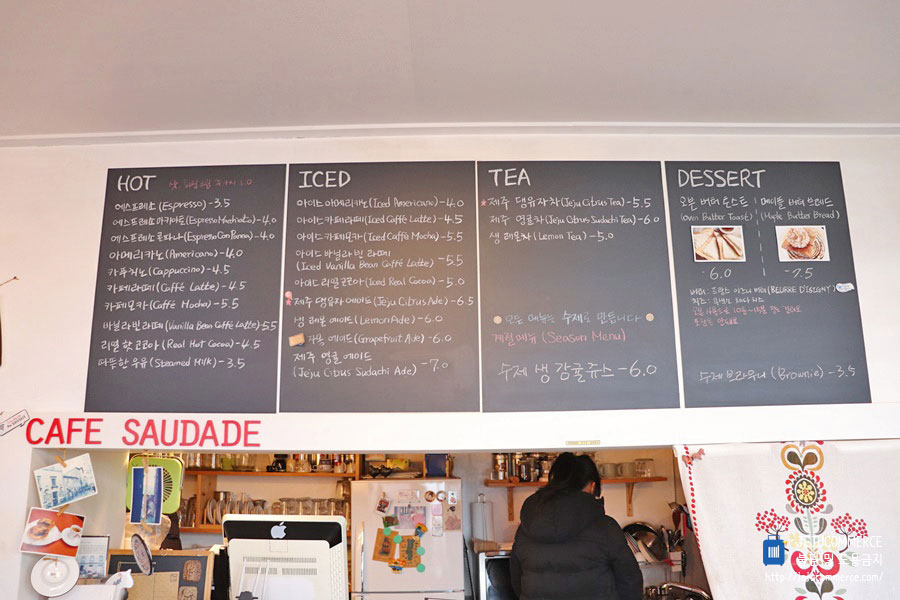 HOT
에스프레소 (Espresso) - 3.5
에스프레소 마키아또 (Espresso Machiato) - 4.0
에스프레소 콘파나 (Espresso Con Panna) - 4.0
아메리카노 (Americano) - 4.0
카푸치노 (Cappuccino) - 4.5
카페라떼 (Caffé Latte) - 4.5
카페모카 (Caffé Mocha) - 5.5
바닐라빈 라떼 (Vanilla Bean Caffé Latte) 5.5
리얼 핫 코코아 (Real Hot Cocoa) - 4.5
따뜻한 우유 (Steamed Milk) - 3.5
ICED
아이스 아메리카노 (Iced Americano) - 4.0
아이스카페라떼 (Iced Caffé Latte) - 4.5
아이스카페모카 (Iced Caffé Mocha) - 5.5
아이스 바닐라 빈 라떼
(Iced Vanilla Bean Caffé Latte) - 5.5
아이스 리얼코코아 (Iced Real Cocoa) - 5.0
제주 댕유자 에이드 (Jeju Citrus Ade) - 6.5
생 레몬 에이드 (Lemon Ade) - 6.0
자몽 에이드 (Grapefruit Ade) - 6.0
제주 영귤 에이드
(Jeju Citrus Sudachi Ade) - 7.0
TEA
제주 댕유자차 (Jeju Citrus Tea) - 5.5
제주 영귤차 (Jeju Citrus Sudachi Tea) - 6.0
생 레몬차 (Lemon Tea) - 5.0
모든 메뉴는 수제로 만듭니다
계절메뉴 (Season Menu)
수제 생 감귤쥬스 - 6.0
DESSERT
오븐 버터 토스트
(Oven Butter Toast)
- 6.0
메이플 버터 브레드
(Maple Butter Bread)
- 7.5
버터 : 프랑스 이즈니 버터 (BEURRE D'ISIGNY)
수제 브라우니 (Brownie) - 3.5
CAFE SAUDADE
JEJUCOMMERCE
불펌 및 도용금지
http://jejucommerce.com/